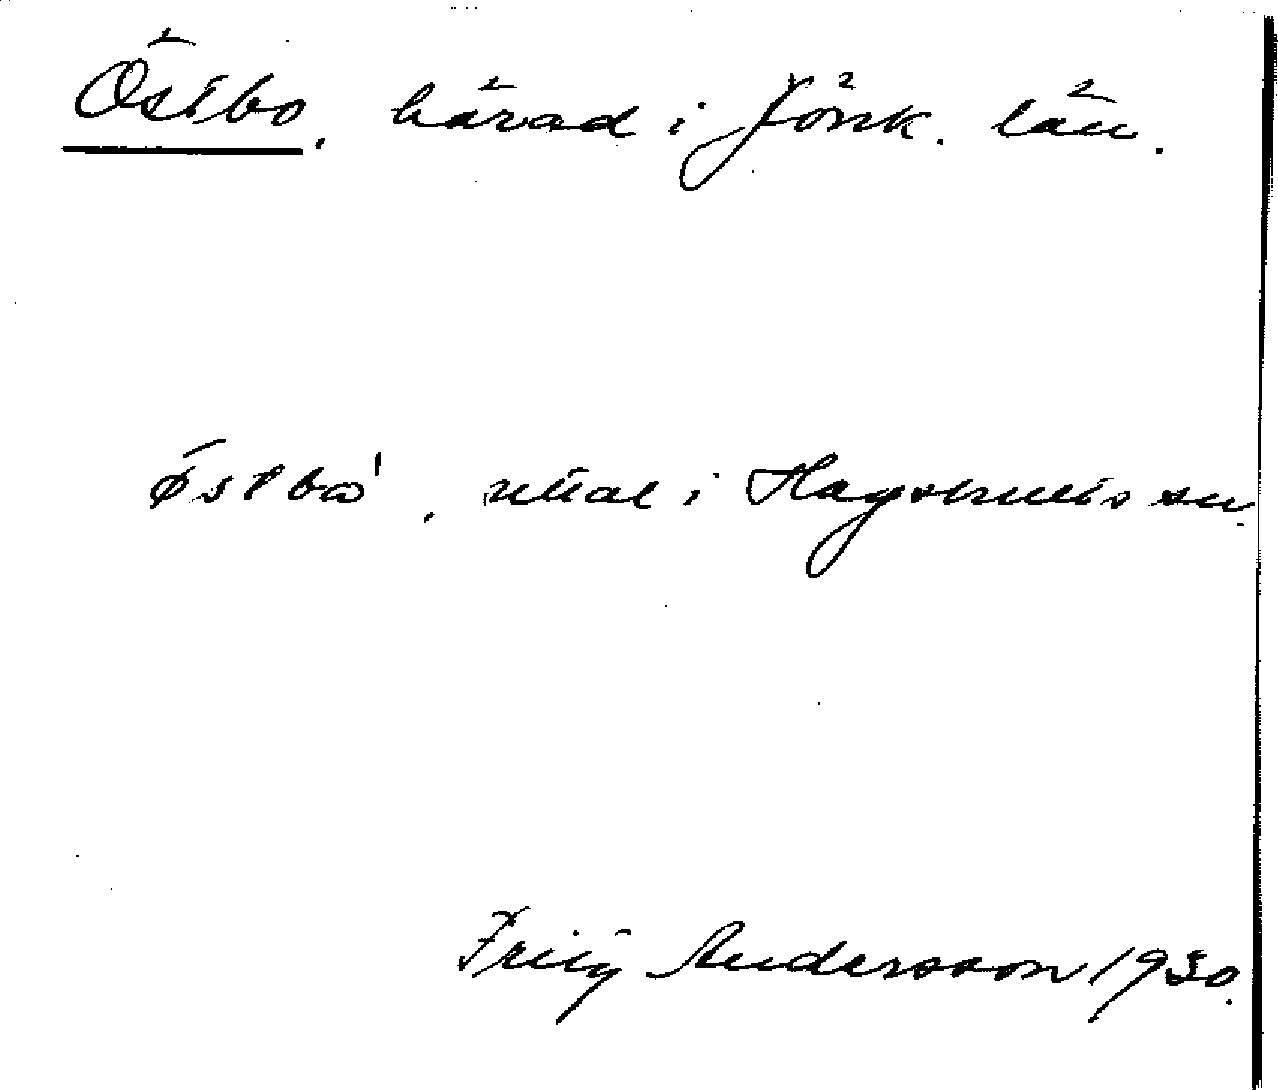 Östbo, härad i Jönk. län.
ø̄stbω', uttal i Hagshults sn.
Fritz Andersson 1930.